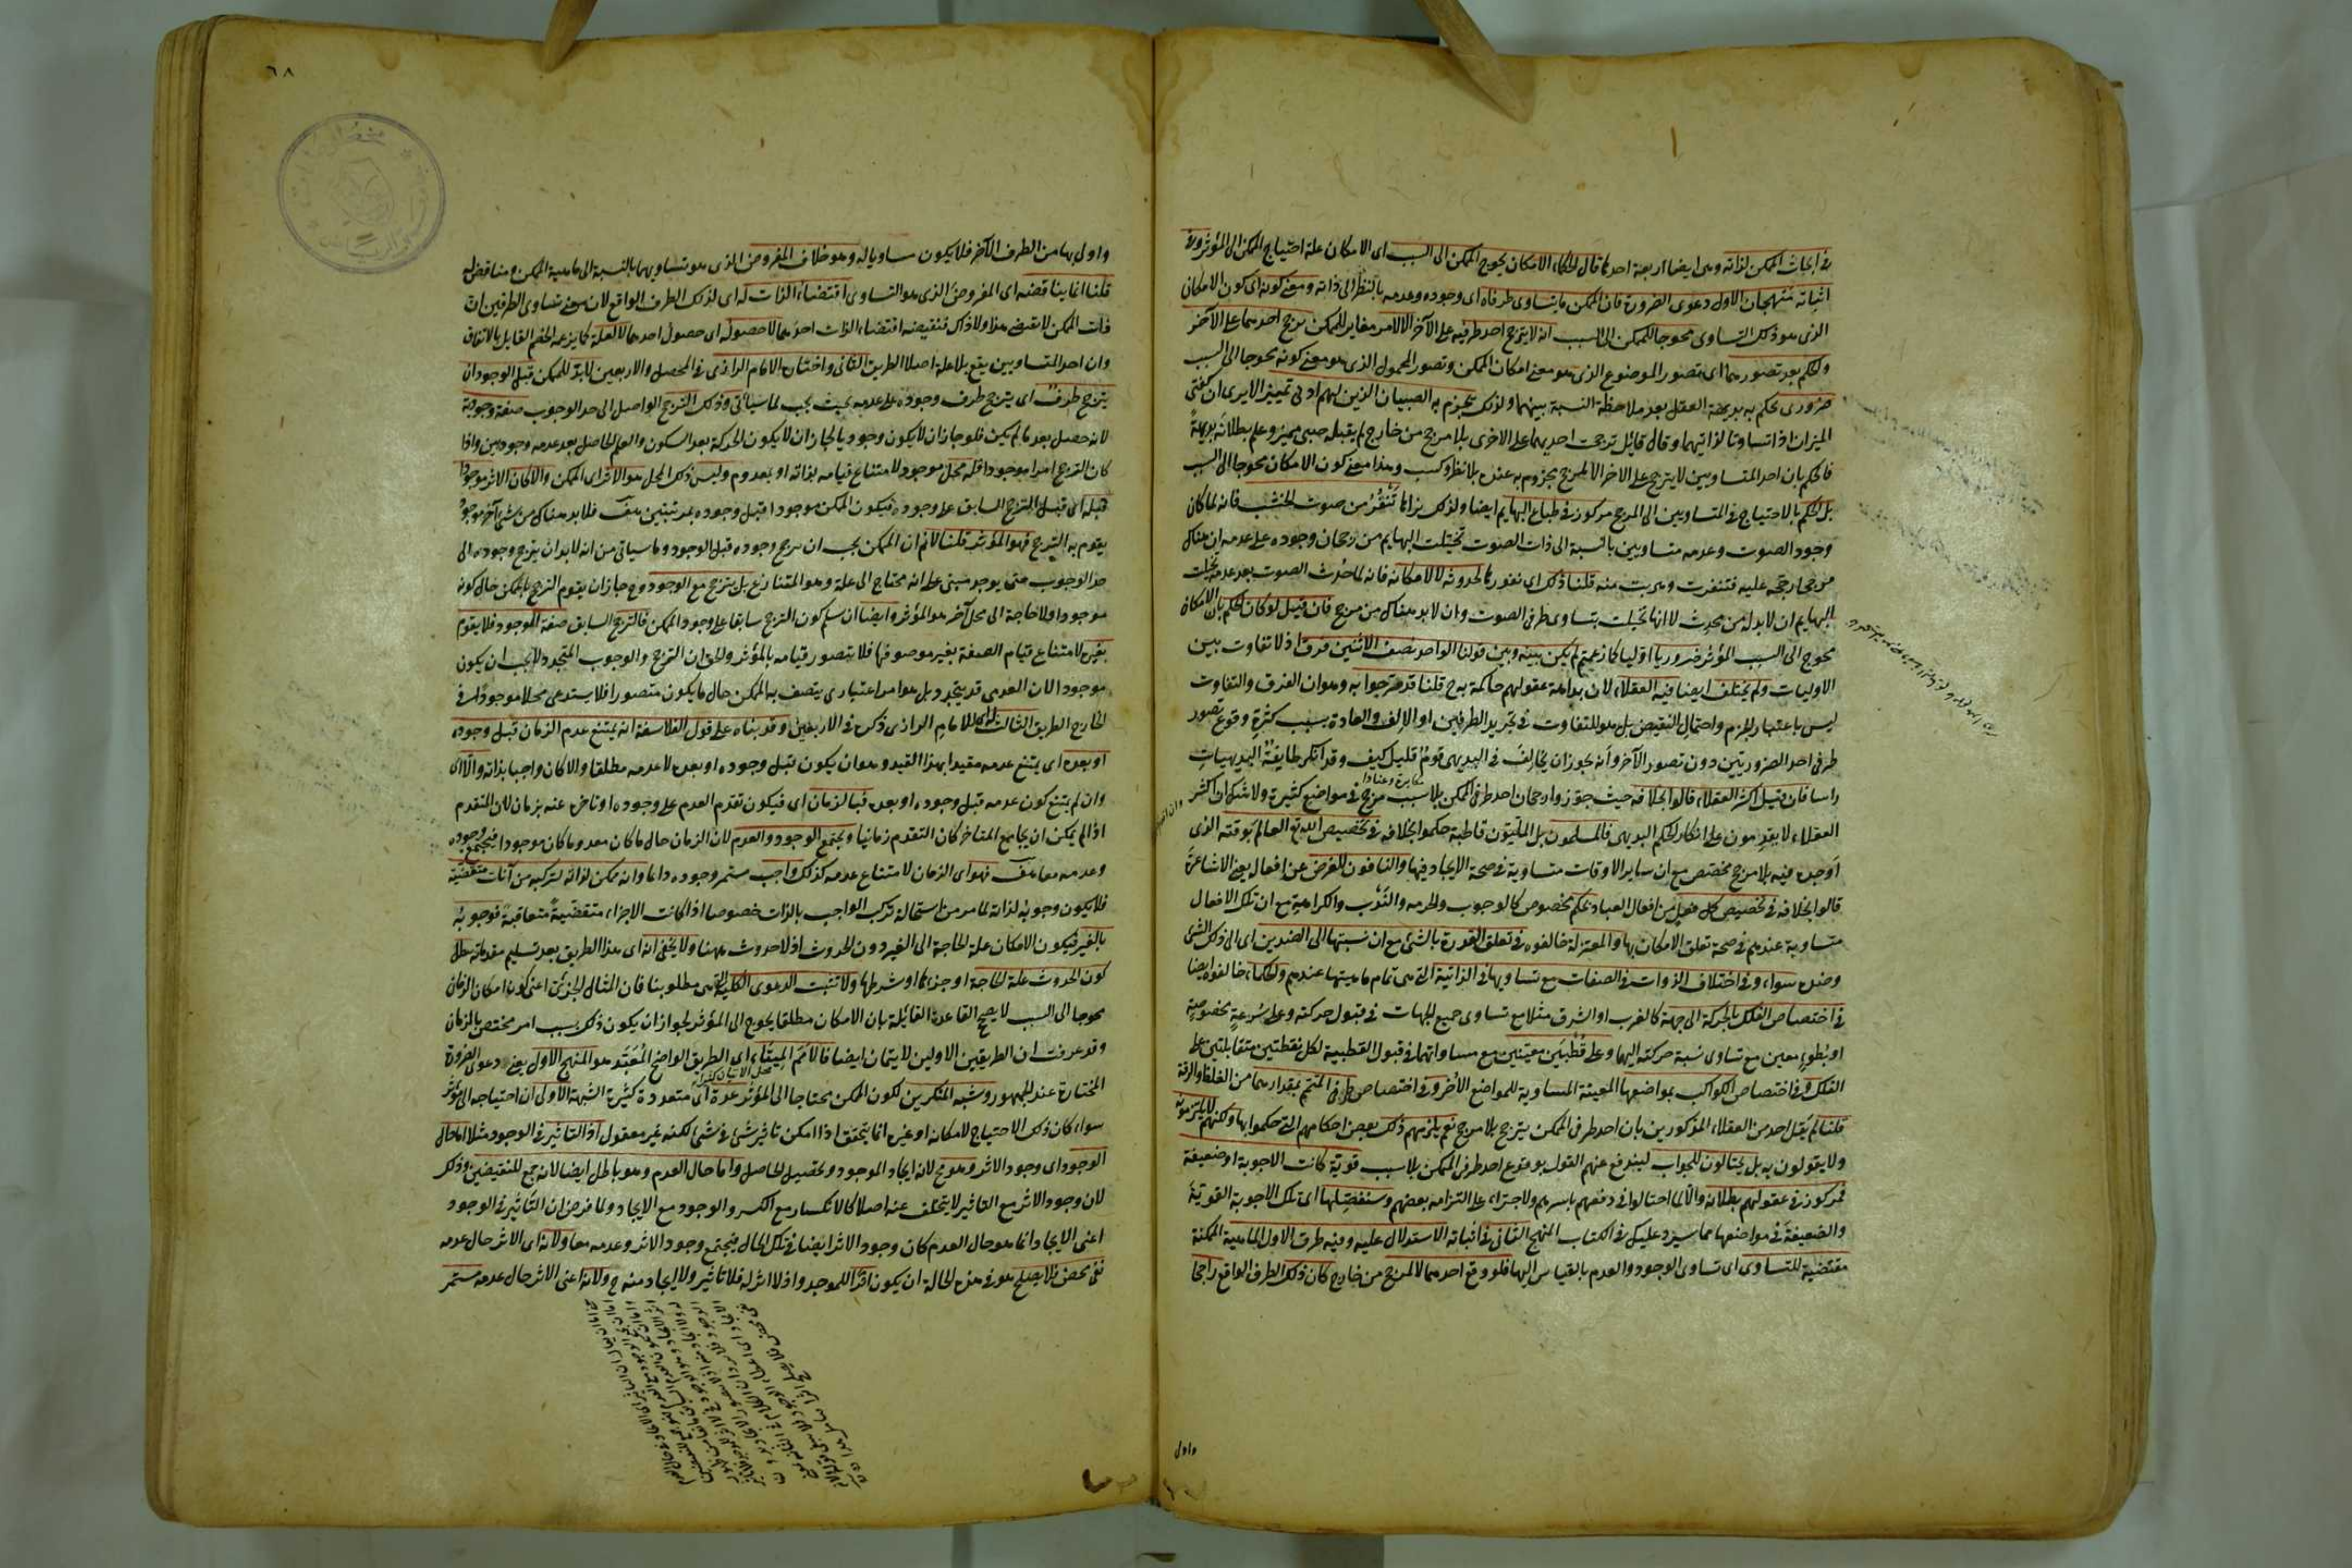 فى ابحاث الممكن لذاته وهى ايضا اربعة احدها قال الحكماء الامكان محوج الممكن الى السبب اى الامكان علة احتياج الممكن الى المؤثر وفى
اثباته منهجان الاول دعوى الضرورة فان الممكن ما يتساوى طرفاه اى وجوده وعدمه بالنظر الى ذاته ومعنى كونه اى كون الامكان
الذى هو ذلك التساوى محوجا للممكن الى السبب انه لا يترجح احد طرفيه على الآخر الا لامر مغاير للممكن يرجح احدهما على الآخر
والحكم بعد تصورهما اى تصور الموضوع الذى هو معنى امكان الممكن وتصور المحمول الذى هو معنى كونه محوجا الى السبب
ضرورى يحكم به بديهة العقل بعد ملاحظة النسبة بينهما ولذلك يجزم به الصبيان الذين لهم ادنى تمييز الا يرى ان كفتى
الميزان اذا تساوتا لذاتيهما وقال قائل ترجحت احديهما على الاخرى بلا مرجح من خارج لم يقبله صبى مميز وعلم بطلانه بديهة
فالحكم بان احد المتساويين لا يترجح على الاخر الا لمرجح مجزوم به عنده بلا نظر وكسب وهذا معنى كون الامكان محوجا الى السبب
بل الحكم بالاحتياج فى المتساويين الى المرجح مركوز فى طباع البهايم ايضا ولذلك تراها تنفر من صوت الخشب فانه لما كان
وجود الصوت وعدمه متساويين بالنسبة الى ذات الصوت تخيلت البهايم من رجحان وجوده على عدمه ان هناك
مرجحا رجحه عليه فتنفرت وهربت منه قلنا ذلك اى نفورها لحدوثه لا لامكانه فانه لما حدث الصوت بعد عدمه تخيلت
البهايم ان لا بد له من محدث لا انها تخيلت تساوى طرفى الصوت وان لا بد هناك من مرجح فان قيل لو كان الحكم بان الامكان
محوج الى السبب المؤثر ضروريا اوليا كما زعمتم لم يكن بينه وبين قولنا الواحد نصف الاثنين فرق اذ لا تفاوت بين
الاوليات ولم يختلف ايضا فيه العقلاء لان بداهة عقولهم حاكمة به ح قلنا قد مر جوابه وهو ان الفرق والتفاوت
ليس باعتبار الجزم واحتمال النقيض بل هو للتفاوت فى تجريد الطرفين او الالف والعادة بسبب كثرة وقوع تصور
طرفى احد الضروريتين دون تصور الآخر وانه يجوز ان يخالف فى البديهى قوم قليل كيف وقد انكر طايفة البديهيات
مكابرة وعنادا
راسا فان قيل اكثر العقلاء قالوا بخلافه حيث جوزوا رجحان احد طرفى الممكن بلا سبب مرجح فى مواضع كثيرة ولا شك ان اكثر
العقلاء لا يقدمون على انكار الحكم البديهى فالمسلمون بل المليون قاطبة حكموا بخلافه فى تخصيص الله تع العالم بوقته الذى
اوجده فيه بلا مرجح مخصص مع ان ساير الاوقات متساوية فى صحة الايجاد فيها والنافون للغرض عن افعاله يعنى الاشاعرة
قالوا بخلافه فى تخصيص كل فعل من افعال العباد بحكم مخصوص كالوجوب والحرمة والندب والكراهة مع ان تلك الافعال
متساوية عندهم فى صحة تعلق الاحكام بها والمعتزلة خالفوه فى تعلق القدرة بالشئ مع ان نسبتها الى الضدين اى الى ذلك الشئ
وضده سواء وفى اختلاف الذوات فى الصفات مع تساويها فى الذاتية التى هى تمام ماهيتها عندهم والحكماء خالفوه ايضا
فى اختصاص الفلك بالحركة الى جهة كالغرب او الشرق مثلا مع تساوى جميع الجهات فى قبول حركته وعلى سرعة مخصوصة
او بطوء معين مع تساوى نسبة حركته اليها وعلى قطبين معينين مع مساواتهما فى قبول القطبية لكل نقطتين متقابلتين على
الفلك وفى اختصاص الكواكب بمواضعها المعينة المساوية للمواضع الأخر وفى اختصاص طرفى المتمم بمقدارهما من الغلظ والرقة
قلنا لم يقل احد من العقلاء المذكورين بان احد طرفى الممكن يترجح بلا مرجح نعم يلزمهم ذلك بعض احكامهم التى حكموا بها ولكنهم لا يلتزمونه
ولا يقولون به بل يحتالون للجواب ليندفع عنهم القول بوقوع احد طرفى الممكن بلا سبب قوية كانت الاجوبة او ضعيفة
فمركوز فى عقولهم بطلانه والا لما احتالوا فى دفعهم باسرهم ولاجترا على التزامه بعضهم وسنفصلها اى تلك الاجوبة القوية
والضعيفة فى مواضعها مما سيرد عليك فى الكتاب المنهج الثانى فى اثباته الاستدلال عليه وفيه طرق الاول الماهية الممكنة
مقتضية للتساوى اى تساوى الوجود والعدم بالقياس اليها فلو وقع احدهما لا لمرجح من خارج كان ذلك الطرف الواقع راجحا
واولى
٦٨
واولى بها من الطرف الآخر فلا يكون مساويا له وهو خلاف المفروض الذى هو تساويهما بالنسبة الى ماهية الممكن مناقض له
قلنا انما يناقضه اى المفروض الذى هو التساوى اقتضاء الذات له اى لذلك الطرف الواقع لان معنى تساوى الطرفين ان
ذات الممكن لا تقتضى هذا ولا ذاك فنقيضه اقتضاء الذات احدهما لا حصوله اى حصول احدهما لا لعلة كما يزعمه الخصم القايل بالاتفاق
وان احد المتساويين يقع بلا علة اصلا الطريق الثانى واختاره الامام الرازى فى المحصل والاربعين لا بد للممكن قبل الوجود ان
يترجح طرف اى يترجح طرف وجوده على عدمه بحيث يجب لما سيأتى وذلك الترجح الواصل الى حد الوجوب صفة وجودية
لانه حصل بعد ما لم يكن فلو جاز ان لا يكون وجوديا لجاز ان لا يكون الحركة بعد السكون والعلم الحاصل بعد عدمه وجوديين واذا
كان الترجح امرا موجودا فله محل موجود لامتناع قيامه بذاته او بمعدوم وليس ذلك المحل هو الاثر اى الممكن والا لكان الاثر موجودا
قبله اى قبل الترجح السابق على وجوده فيكون الممكن موجودا قبل وجوده بمرتبتين هف فلا بد هناك من شئ آخر موجود
يقوم به الترجح فهو المؤثر قلنا لا نم ان الممكن يجب ان يرجح وجوده قبل الوجود وما سياتى من انه لا بد ان يترجح وجوده الى
حد الوجوب حتى يوجد مبنى على انه محتاج الى علة وهو المتنازع بل يترجح مع الوجود وح جاز ان يقوم الترجح بالممكن حال كونه
موجودا ولا حاجة الى محل آخر هو المؤثر وايضا ان سلم كون الترجح سابقا على وجود الممكن فالترجح السابق صفة الوجود فلا يقوم
بغيره لامتناع قيام الصفة بغير موصوفها فلا يتصور قيامه بالمؤثر والحق ان الترجح والوجوب المتجدد لا يجب ان يكون
موجودا لان العدمى قد يتجدد بل هو امر اعتبارى يتصف به الممكن حال ما يكون متصورا فلا يستدعى محلا موجودا فى
الخارج الطريق الثالث للامام الرازى ذكره فى الاربعين وقد بناه على قول الفلاسفة انه يمتنع عدم الزمان قبل وجوده
او بعده اى يمتنع عدمه مقيدا بهذا القيد وهو ان يكون قبل وجوده او بعده لا عدمه مطلقا والا كان واجبا بذاته والا اى
وان لم يمتنع كون عدمه قبل وجوده او بعده فبالزمان اى فيكون تقدم العدم على وجوده او تاخره عنه بزمان لان المتقدم
اذا لم يمكن ان يجامع المتاخر كان التقدم زمانيا ويجتمع الوجود والعدم لان الزمان حال ما كان معدوما كان موجودا فيجتمع وجوده
وعدمه معا هف فهو اى الزمان لامتناع عدمه كذلك واجب مستمر وجوده دايما وانه ممكن لذاته لتركبه من آنات متقضية
فلا يكون وجوبه لذاته لما مر من استحالة تركب الواجب بالذات خصوصا اذا كانت الاجزاء متقضية متعاقبة فوجوبه
بالغير فيكون الامكان علة الحاجة الى الغير دون الحدوث اذ لا حدوث ههنا ولا يخفى انه اى هذا الطريق بعد تسليم مقدماته يبطل
كون الحدوث علة الحاجة او جزءها او شرطها ولا تثبت الدعوى الكلية التى هى مطلوبنا فان المثال الجزئى اعنى كون امكان الزمان
محوجا الى السبب لا يصحح القاعدة القائلة بان الامكان مطلقا يحوج الى المؤثر لجواز ان يكون ذلك بسبب امر مختص بالزمان
وقد عرفت ان الطريقين الاولين لا يتمان ايضا فالأمم الميتاء اى الطريق الواضح المعبد هو المنهج الاول يعنى دعوى الضرورة
المختارة عند الجمهور وشبه المنكرين لكون الممكن محتاجا الى المؤثر عدة اى متعددة كثيرة الشبهة الاولى ان احتياجه الى مؤثر
سواء كان ذلك الاحتياج لامكانه او غيره انما يتحقق اذا امكن تاثير شئ فى شئ لكنه غير معقول اذ التاثير فى الوجود مثلا اما حال
الوجود اى وجود الاثر وهو مح لانه ايجاد الموجود وتحصيل الحاصل واما حال العدم وهو باطل ايضا لانه جمع للنقيضين وذلك
لان وجود الاثر مع التاثير لا يتخلف عنه اصلا كالانكسار مع الكسر والوجود مع الايجاد ولما فرض ان التأثير فى الوجود
اعنى الايجاد انما هو حال العدم كان وجود الاثر ايضا فى تلك الحال فيجتمع وجود الاثر وعدمه معا ولانه اى الاثر حال عدمه
نفى محض فلا يصلح هو فى هذه الحالة ان يكون اثرا للموجد واذ لا اثر له فلا تاثير ولا ايجاد منه ح ولانه اعنى الاثر حال عدمه مستمر